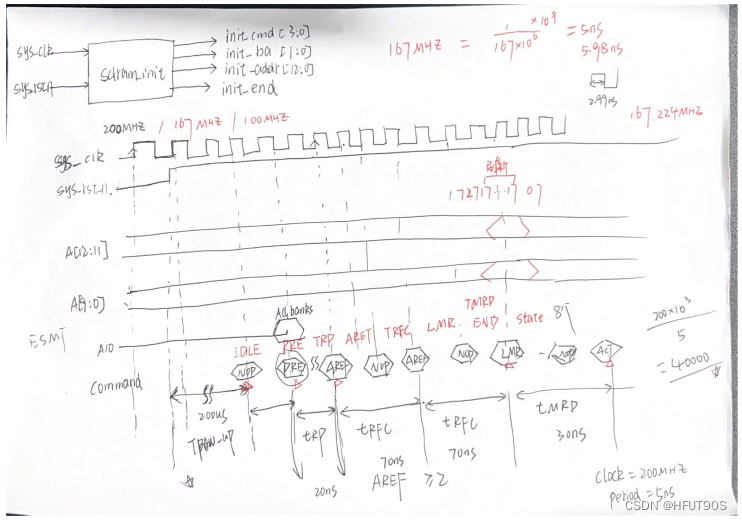 sys_clk
sys_rst_n
sdram_init
init_cmd [3:0]
init_ba [1:0]
init_addr [12:0]
init_end
167MHZ = 1 ×10³ / 167×10⁶ = 5ns
5.98ns
2.99ns
167.224MHZ
200MHZ / 167MHZ / 100MHZ
sys_clk
sys_rst_n
A[12:11]
A[9:0]
ESMT
A10
All banks
IDLE PRE TRP AREF TRFC LMR TMRD END state 8个
Command
NOP PRE AREF NOP AREF NOP LMR NOP ACT
200us
tRP
20ns
tRFC
70ns
tRFC
70ns
tMRD
30ns
AREF ≥2
200×10³ / 5 = 40000
clock = 200MHZ
period = 5ns
CSDN @HFUT90S